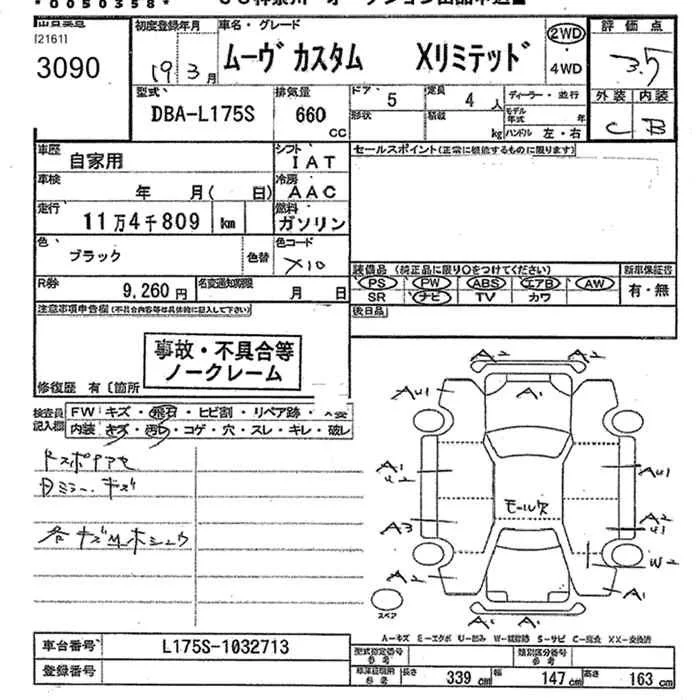 * 0050358 *
[2161]
3090
初度登録年月
19 3月
車名・グレード
ムーヴ カスタム Xリミテッド
2WD
・
4WD
評価点
3.5
型式
DBA-L175S
排気量
660
CC
ドア 5
定員 4人
形状
積載 kg
ディーラー・並行
モデル年式 年
ハンドル 左・右
外装 内装
C B
車歴
自家用
シフト
IAT
セールスポイント(正常に機能するものに限ります)
車検
年 月( 日)
冷房
AAC
走行
11万4千809 km
燃料
ガソリン
色
ブラック
色替
色コード
X10
装備品 (純正品に限り○をつけてください)
新車保証書
PS PW ABS エアB AW
SR ナビ TV カワ
有・無
R券
9,260円
名変通知期限
月 日
後日品
注意事項申告欄(不具合内容等は具体的に記入して下さい)
事故・不具合等
ノークレーム
修復歴 有〔箇所
検査員
記入欄
FW キズ・飛石・ヒビ割・リペア跡・
内装 キズ・汚れ・コゲ・穴・スレ・キレ・破レ
ミラー キズ
A2 A2
AU1 A1
A1
U2
AU1
モール欠
A3 A2
U1
W2
A2 A1
スペア
A1
A-キズ E-エクボ U-凹み W-補修跡 S-サビ C-腐食 XX-交換済
車台番号
L175S-1032713
登録番号
型式指定番号
参考
類別区分番号
参考
長さ 339 cm 幅 147 cm 高さ 163 cm